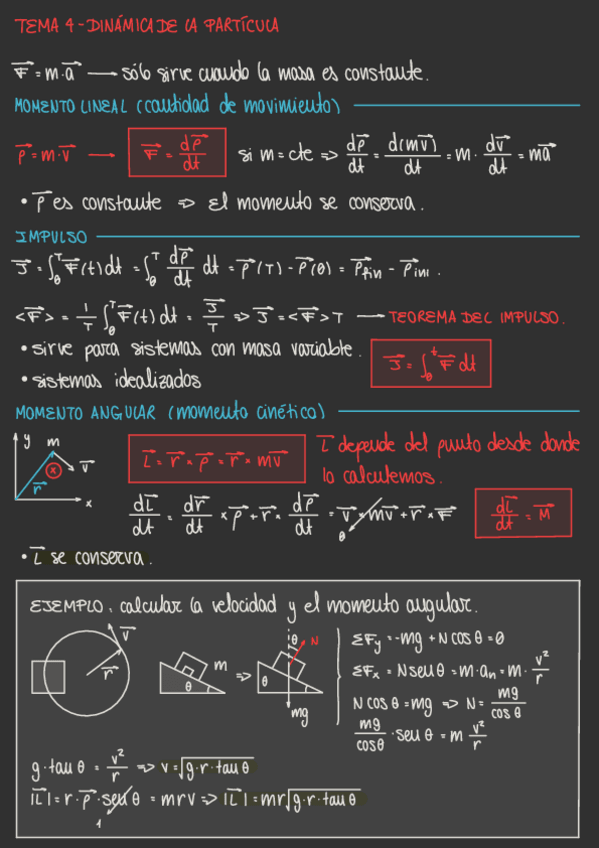 TEMA 4-DINÁMICA DE LA PARTÍCULA
F⃗ = m·a⃗ → sólo sirve cuando la masa es constante.
MOMENTO LINEAL (cantidad de movimiento)
p⃗ = m·v⃗ → F⃗ = dp⃗/dt si m = cte ⇒ dp⃗/dt = d(mv⃗)/dt = m · dv⃗/dt = ma⃗
• p⃗ es constante ⇒ El momento se conserva.
IMPULSO
J⃗ = ∫₀ᵀ F⃗(t)dt = ∫₀ᵀ dp⃗/dt dt = p⃗(T) - p⃗(0) = p⃗fin - p⃗ini.
<F⃗> = 1/T ∫₀ᵀ F⃗(t)dt = J⃗/T ⇒ J⃗ = <F⃗>T → TEOREMA DEL IMPULSO.
• sirve para sistemas con masa variable.
J⃗ = ∫₀ᵗ F⃗ dt
• sistemas idealizados
MOMENTO ANGULAR (momento cinético)
y m v⃗ r⃗ x x
L⃗ = r⃗ × p⃗ = r⃗ × mv⃗
L⃗ depende del punto desde donde
lo calculemos.
dL⃗/dt = dr⃗/dt × p⃗ + r⃗ × dp⃗/dt = v⃗ × mv⃗ + r⃗ × F⃗
0
dL⃗/dt = M⃗
• L⃗ se conserva.
EJEMPLO: calcular la velocidad y el momento angular.
v⃗ r⃗
θ m ⇒
θ θ N mg
ΣFy = -mg + N cos θ = 0
ΣFx = N seu θ = m·an = m· v²/r
N cos θ = mg ⇒ N = mg/cos θ
mg/cosθ · seu θ = m v²/r
g·tau θ = v²/r ⇒ v = √(g·r·tau θ)
|L⃗| = r·p⃗·seu θ = mrv ⇒ |L⃗| = mr√(g·r·tau θ)
1